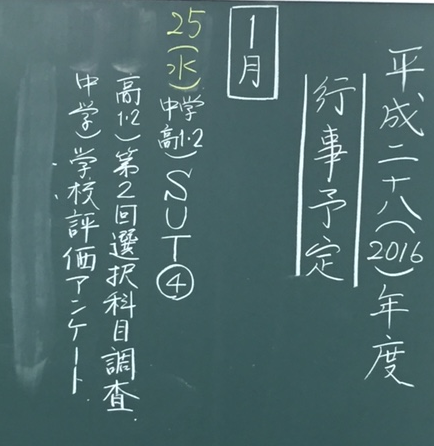 平成二十八(2016)年度
行事予定
1月
25(水)中学 高1・2)SUT④
高1・2)第2回選択科目調査.
中学)学校評価アンケート.